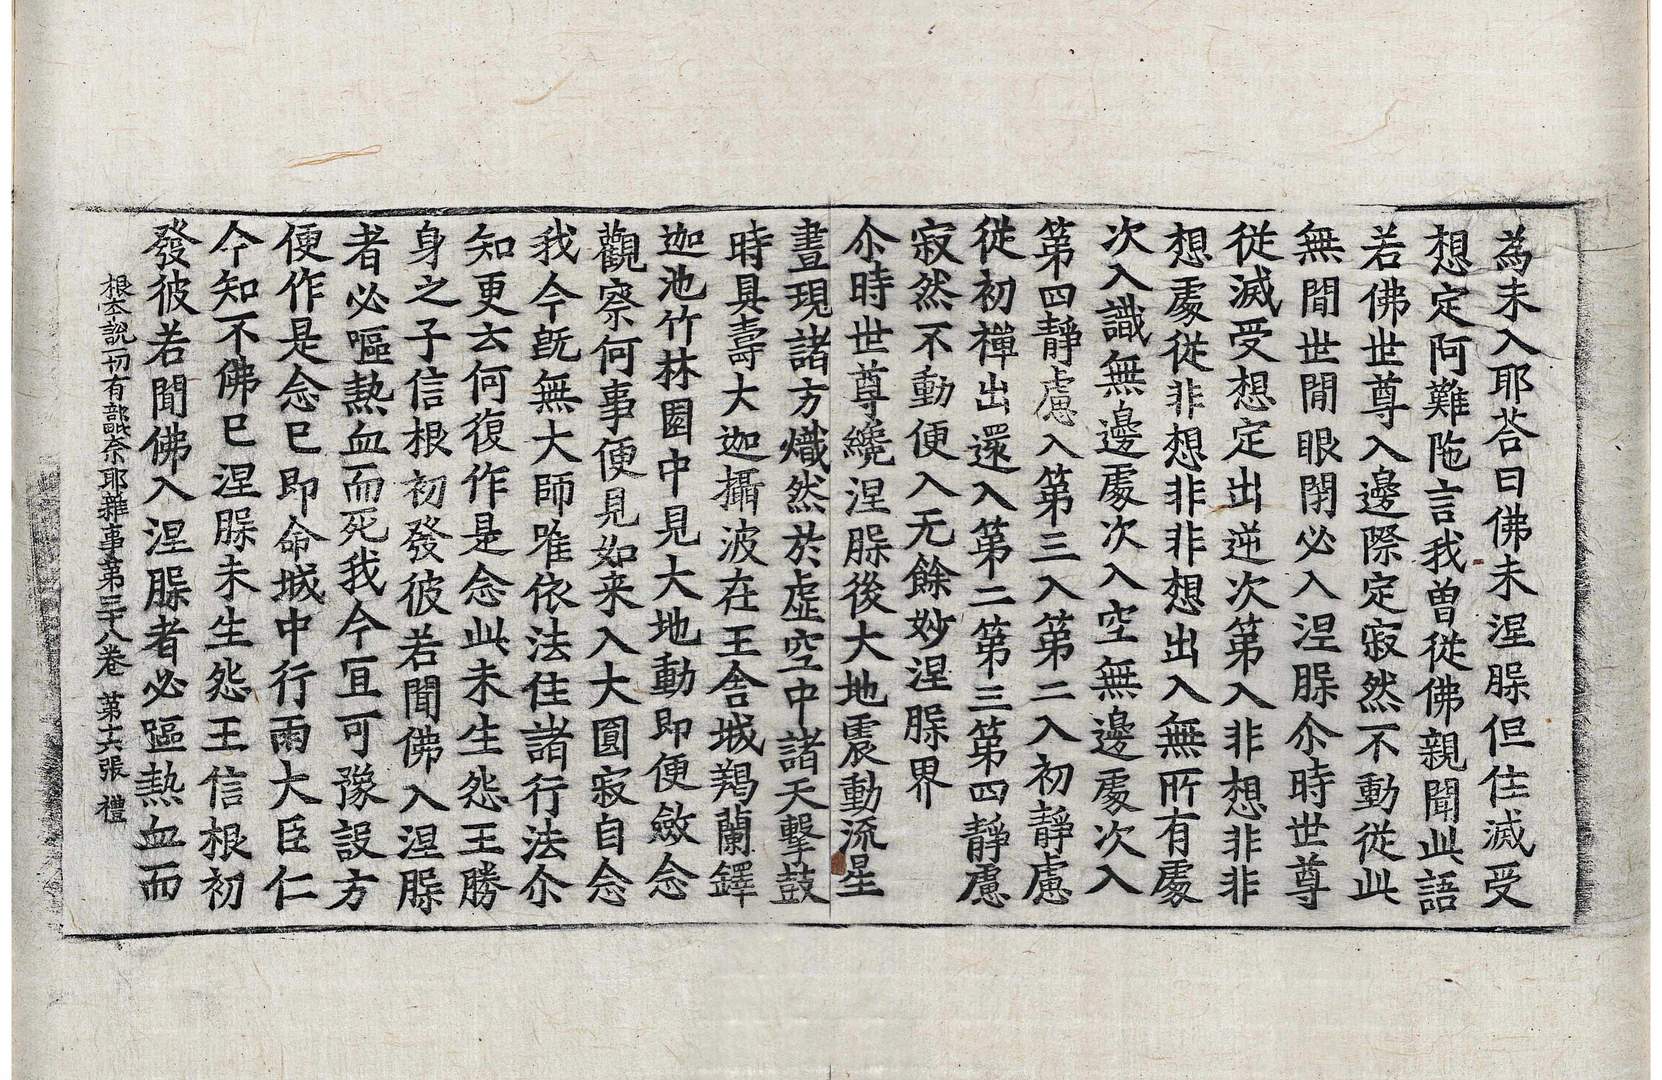 為未入耶荅曰佛未涅脲但住滅受
想定阿難陁言我曽從佛親聞此語
若佛世尊入邊際定寂然不動從此
無間世間眼閉必入涅脲尒時世尊
從滅受想定出逆次第入非想非非
想處從非想非非想出入無所有處
次入識無邊處次入空無邊處次入
第四靜慮入第三入第二入初靜慮
從初禪出還入第二第三第四靜慮
寂然不動便入无餘妙涅脲界
尒時世尊纔涅脲後大地震動流星
晝現諸方熾然於虛空中諸天擊鼓
時具壽大迦攝波在王舍城羯蘭鐸
迦池竹林園中見大地動即便斂念
觀察何事便見如来入大圓寂自念
我今旣無大師唯依法住諸行法尒
知更云何復作是念此未生怨王勝
身之子信根初發彼若聞佛入涅脲
者必嘔熱血而死我今宜可豫設方
便作是念已即命城中行雨大臣仁
今知不佛已涅脲未生怨王信根初
發彼若聞佛入涅脲者必嘔熱血而
根本說一切有部毗奈耶雜事第三十八卷 第十六張 禮